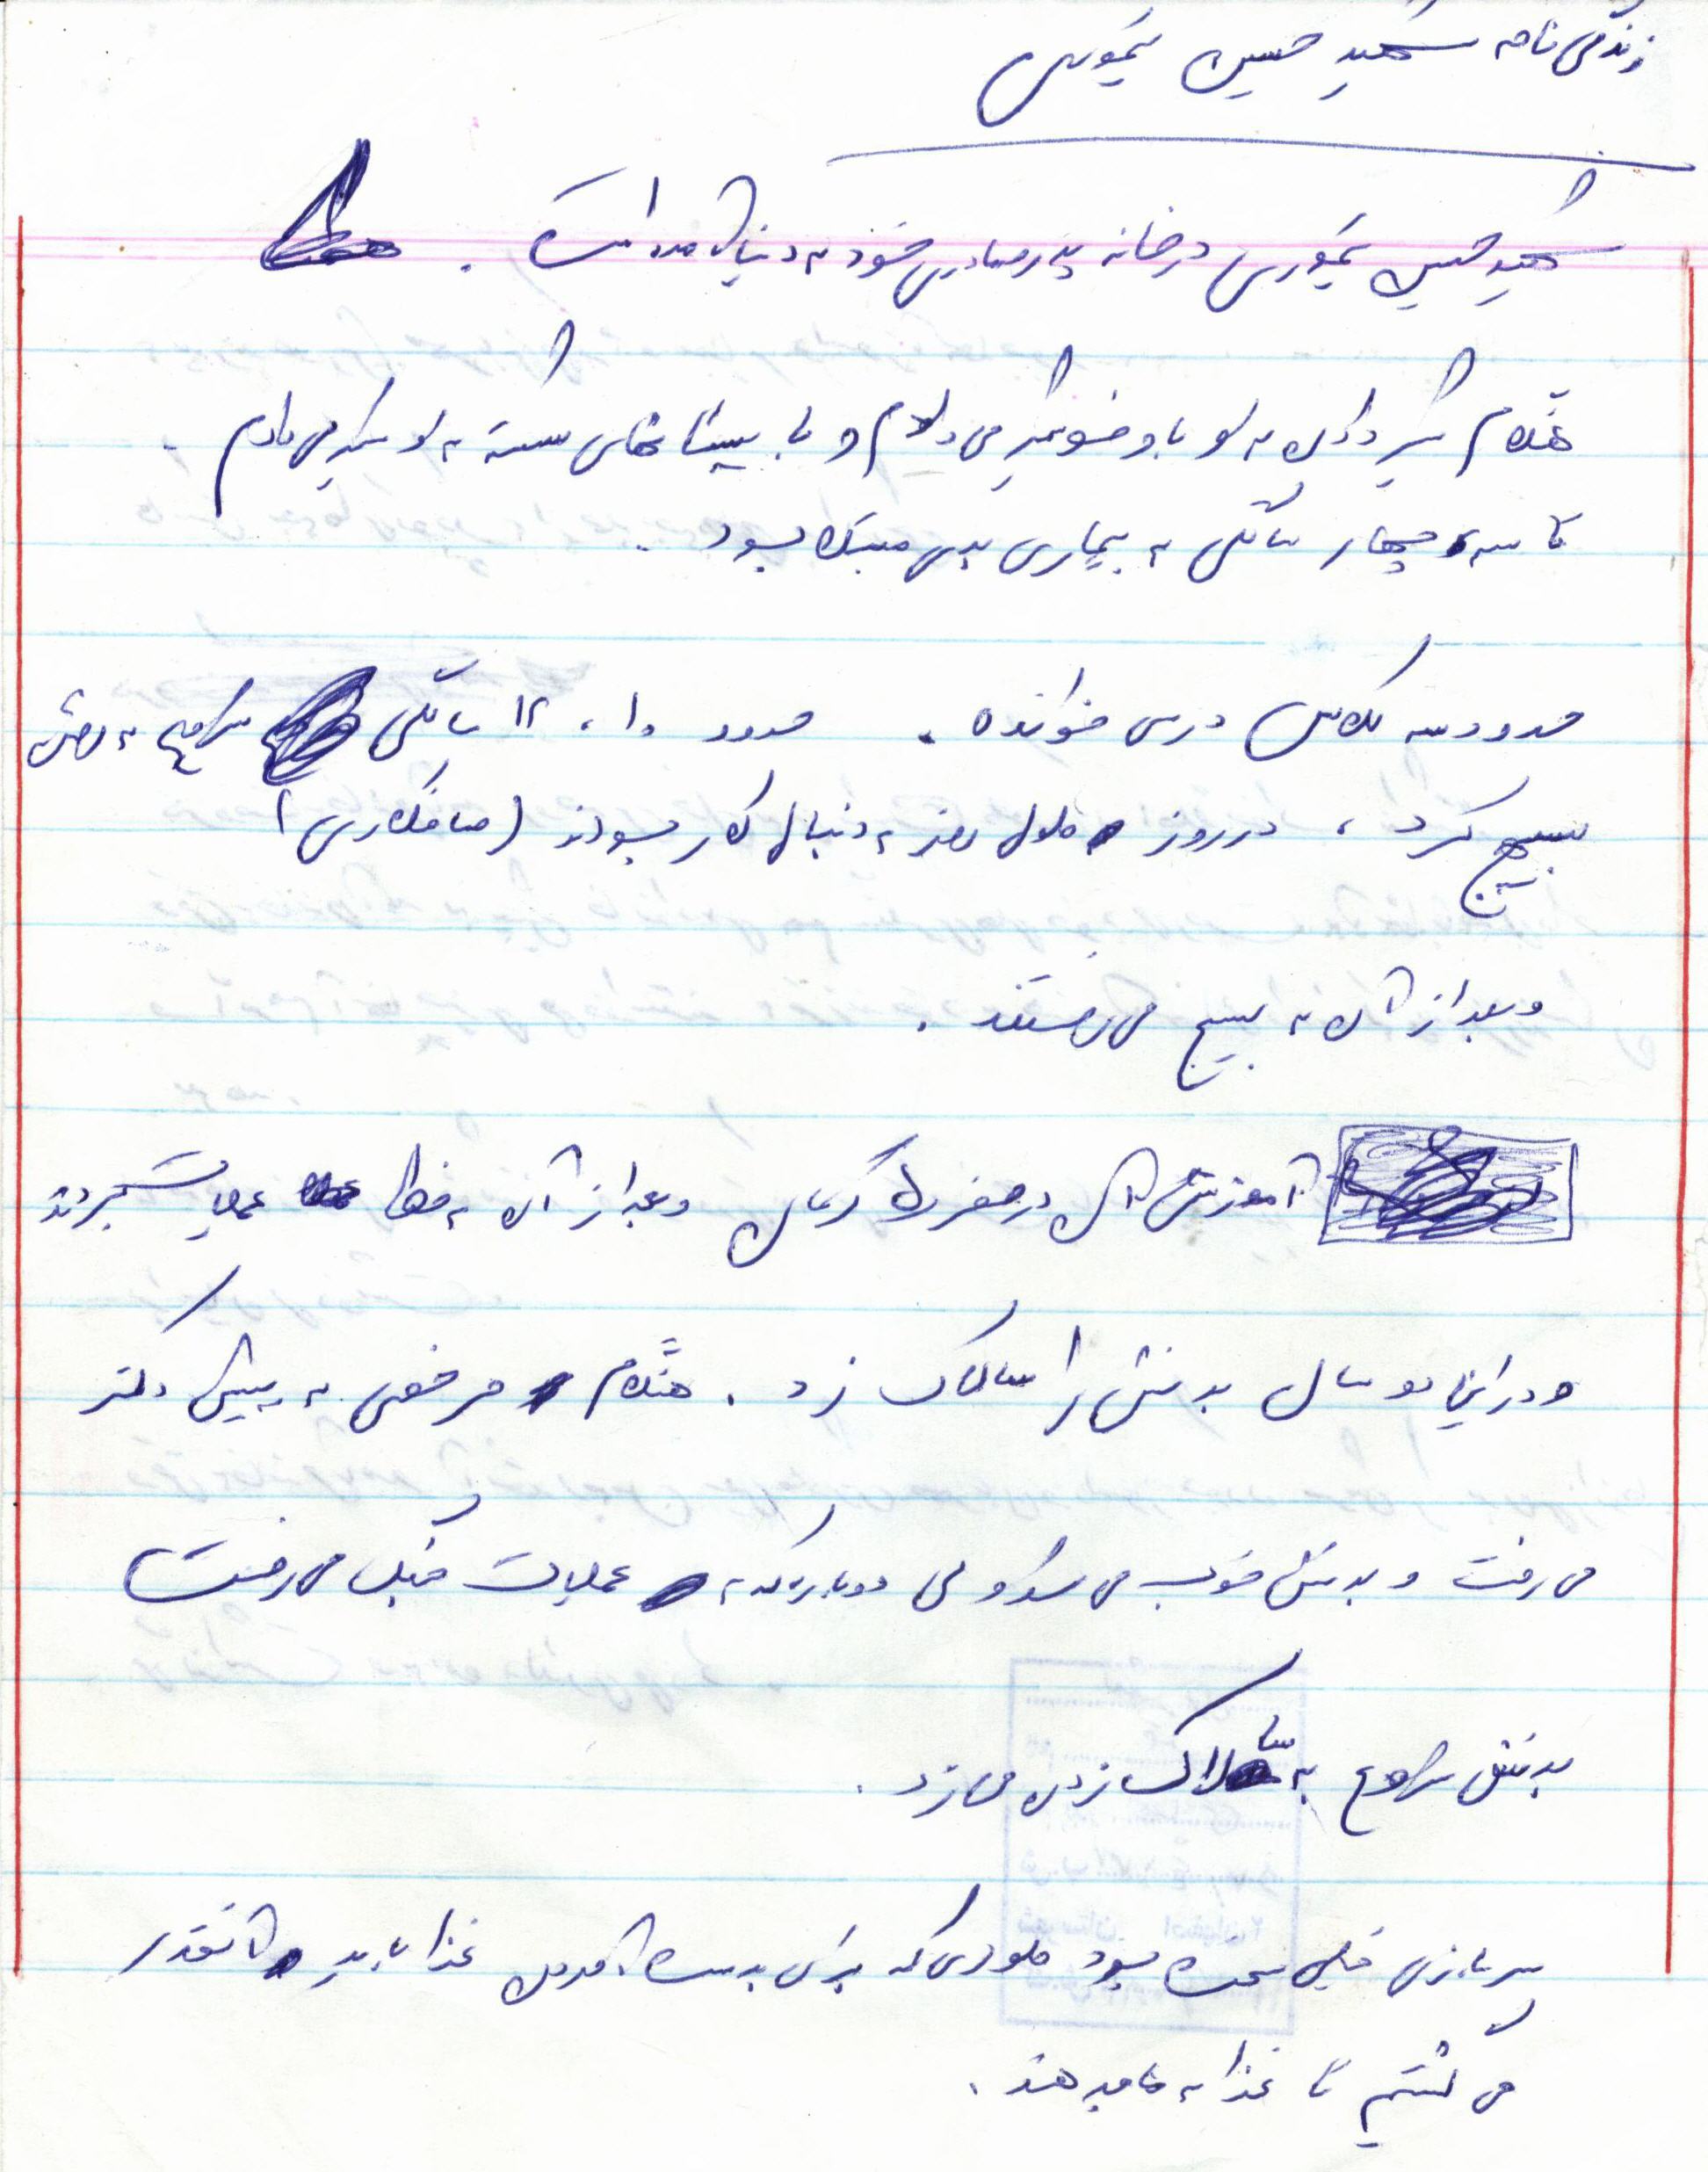 زندگی نامه شهید حسین تیموری
شهید حسین تیموری در خانه پدر و مادری خود به دنیا آمده است.
هنگام شیر دادن به او با وضو شیر می دادم و با پستانهای شسته به او شیر می دادم.
تا سه، چهار سالگی به بیماری بدی مبتلا بود.
حدود سه کلاس درس خوانده. حدود ۱۰، ۱۲ سالگی شروع به رفتن
بسیج کرد، در روز طول روز به دنبال کار بودند (صافکاری)
و بعد از آن به بسیج می رفتند.
آموزش آن در کرمان و بعد از آن به خط عملیات بردند
و در این دو سال بدنش را سالاک زد. هنگام مرخصی به پیش دکتر
می رفت و بدنش خوب می شد ولی دوباره که به عملیات می رفت
بدنش شروع به سالاک زدن می زد.
سربازی خیلی سخت بود طوری که برای بدست آوردن غذا باید آنقدر
می گشتیم تا غذا به ما بدهند.